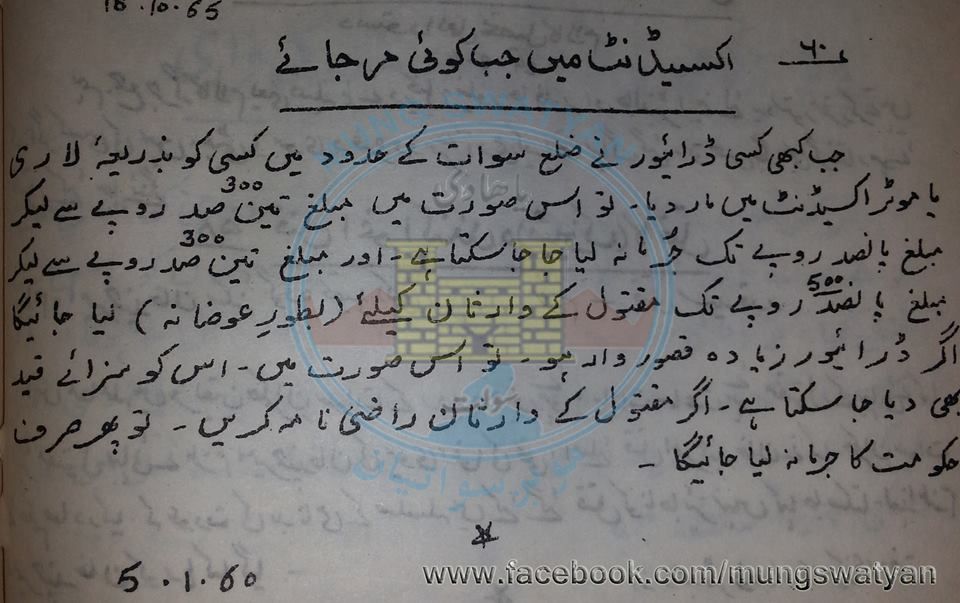 18.10.65
۶۰؁ اکسیڈنٹ میں جب کوئی مر جائے
جب کبھی کسی ڈرائیور نے ضلع سوات کے حدود میں کسی کو بذریعۂ لاری
یا موٹر اکسیڈنٹ میں مار دیا۔ تو اس صورت میں مبلغ تین صد 300 روپے سے لیکر
مبلغ پانصد روپے تک جُرمانہ لیا جا سکتا ہے۔ اور مبلغ تین صد 300 روپے سے لیکر
مبلغ پانصد 500 روپے تک مقتول کے وارثان کیلئے (بطورِ عوضانہ) لیا جائیگا
اگر ڈرائیور زیادہ قصور وار ہو۔ تو اس صورت میں۔ اس کو سزائے قید
بھی دیا جا سکتا ہے۔ اگر مقتول کے وارثان راضی نامہ کریں۔ تو پھر صرف
حکومت کا جرمانہ لیا جائیگا۔
5.1.60
www.facebook.com/mungswatyan